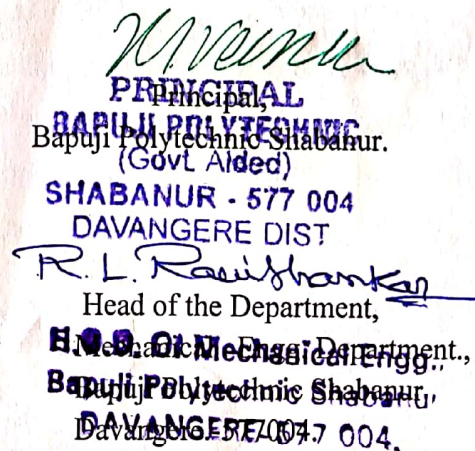 PRINCIPAL
Principal,
BAPUJI POLYTECHNIC
Bapuji Polytechnic Shabanur.
(Govt. Aided)
SHABANUR - 577 004
DAVANGERE DIST
R. L. Ravishankar
Head of the Department,
H.O.D. Of Mechanical Engg.,
Mechanical Engg. Department.,
Bapuji Polytechnic Shabanur,
Bapuji Polytechnic Shabanur,
DAVANGERE-577 004.
Davangere-577004.